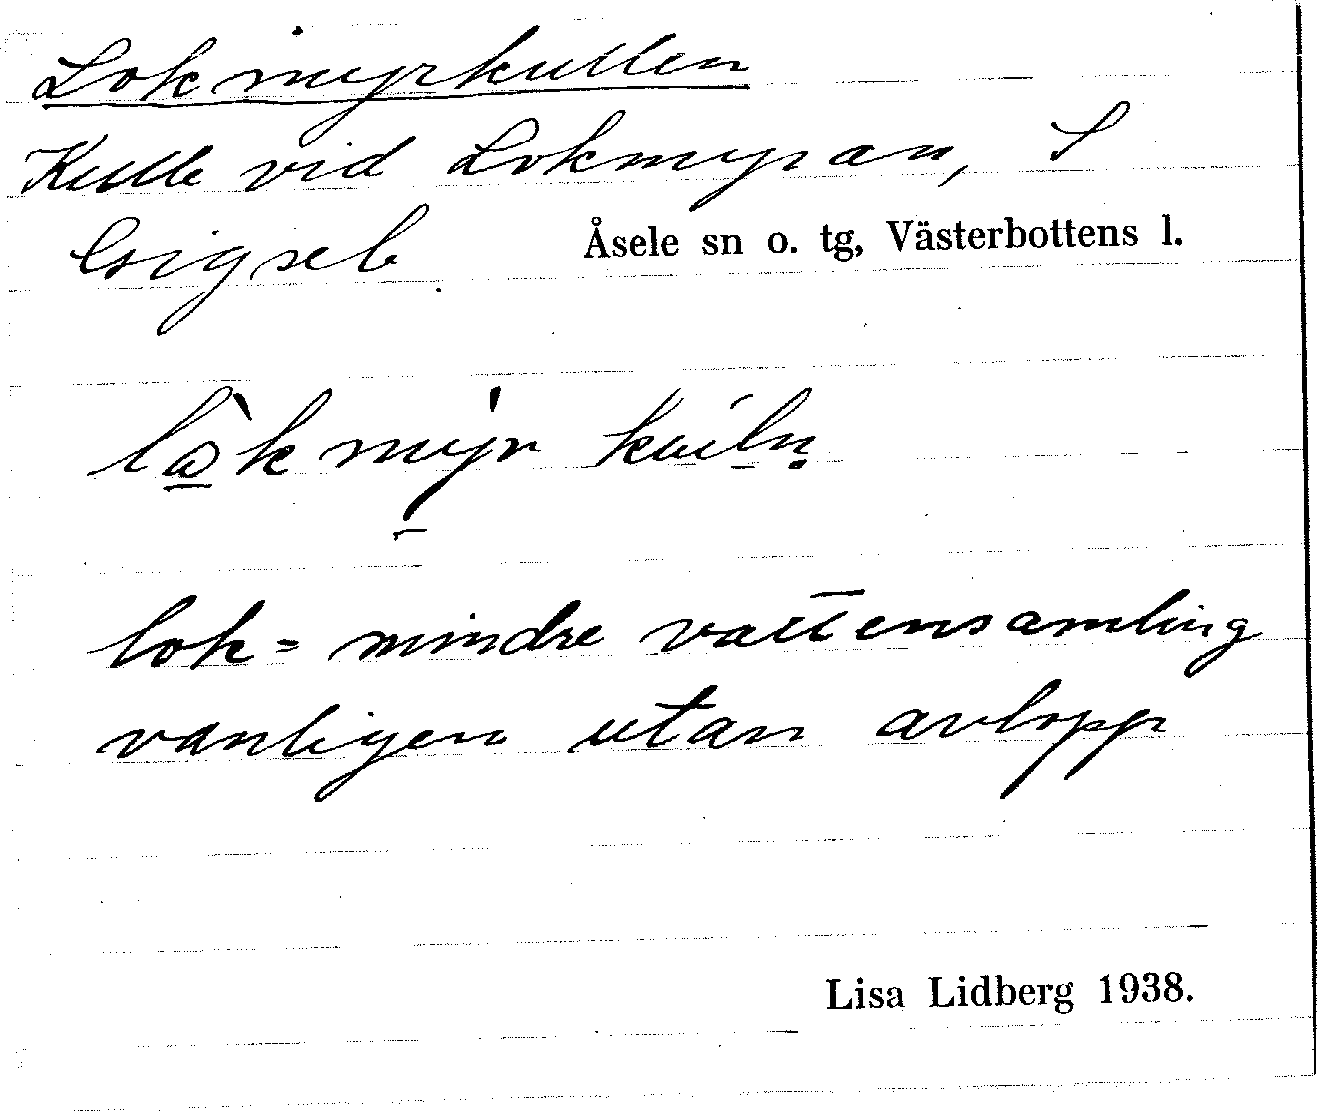 Lokmyrkullen
Kulle vid Lokmyran, S
Gigsele Åsele sn o. tg, Västerbottens l.
lok = mindre vattensamling
vanligen utan avlopp
Lisa Lidberg 1938.